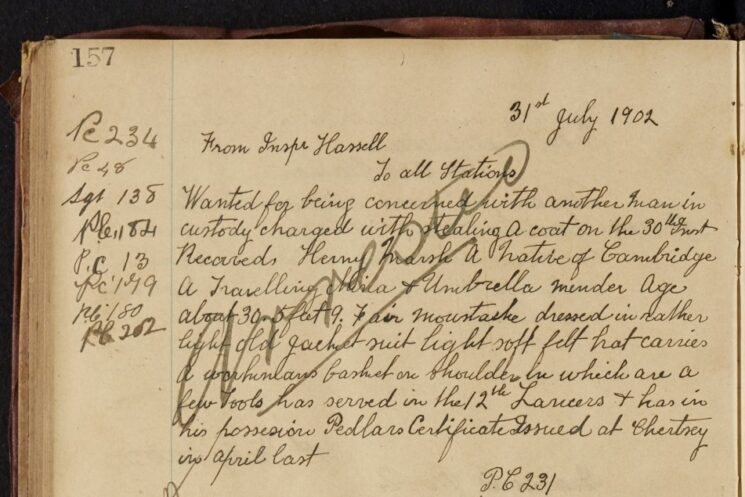 157
31st July 1902
Pc 234
Pc 48
Sgt 138
P.C. 184
P.C 13
Pc 179
PC 180
P.C. 202
From Inspr Hassell
To all Stations
Wanted for being concerned with another man in
custody charged with stealing a coat on the 30th Inst
Henry Marsh A Native of Cambridge
A Travelling & Umbrella mender Age
about 30. 5 feet 9. Fair moustache dressed in rather
light old Jacket suit light soft felt hat carries
a workmans basket on shoulder in which are a
few Tools has served in the 12th Lancers & has in
his possesion Pedlars Certificate Issued at Chertsey
in april last
P.C 231
Arrested